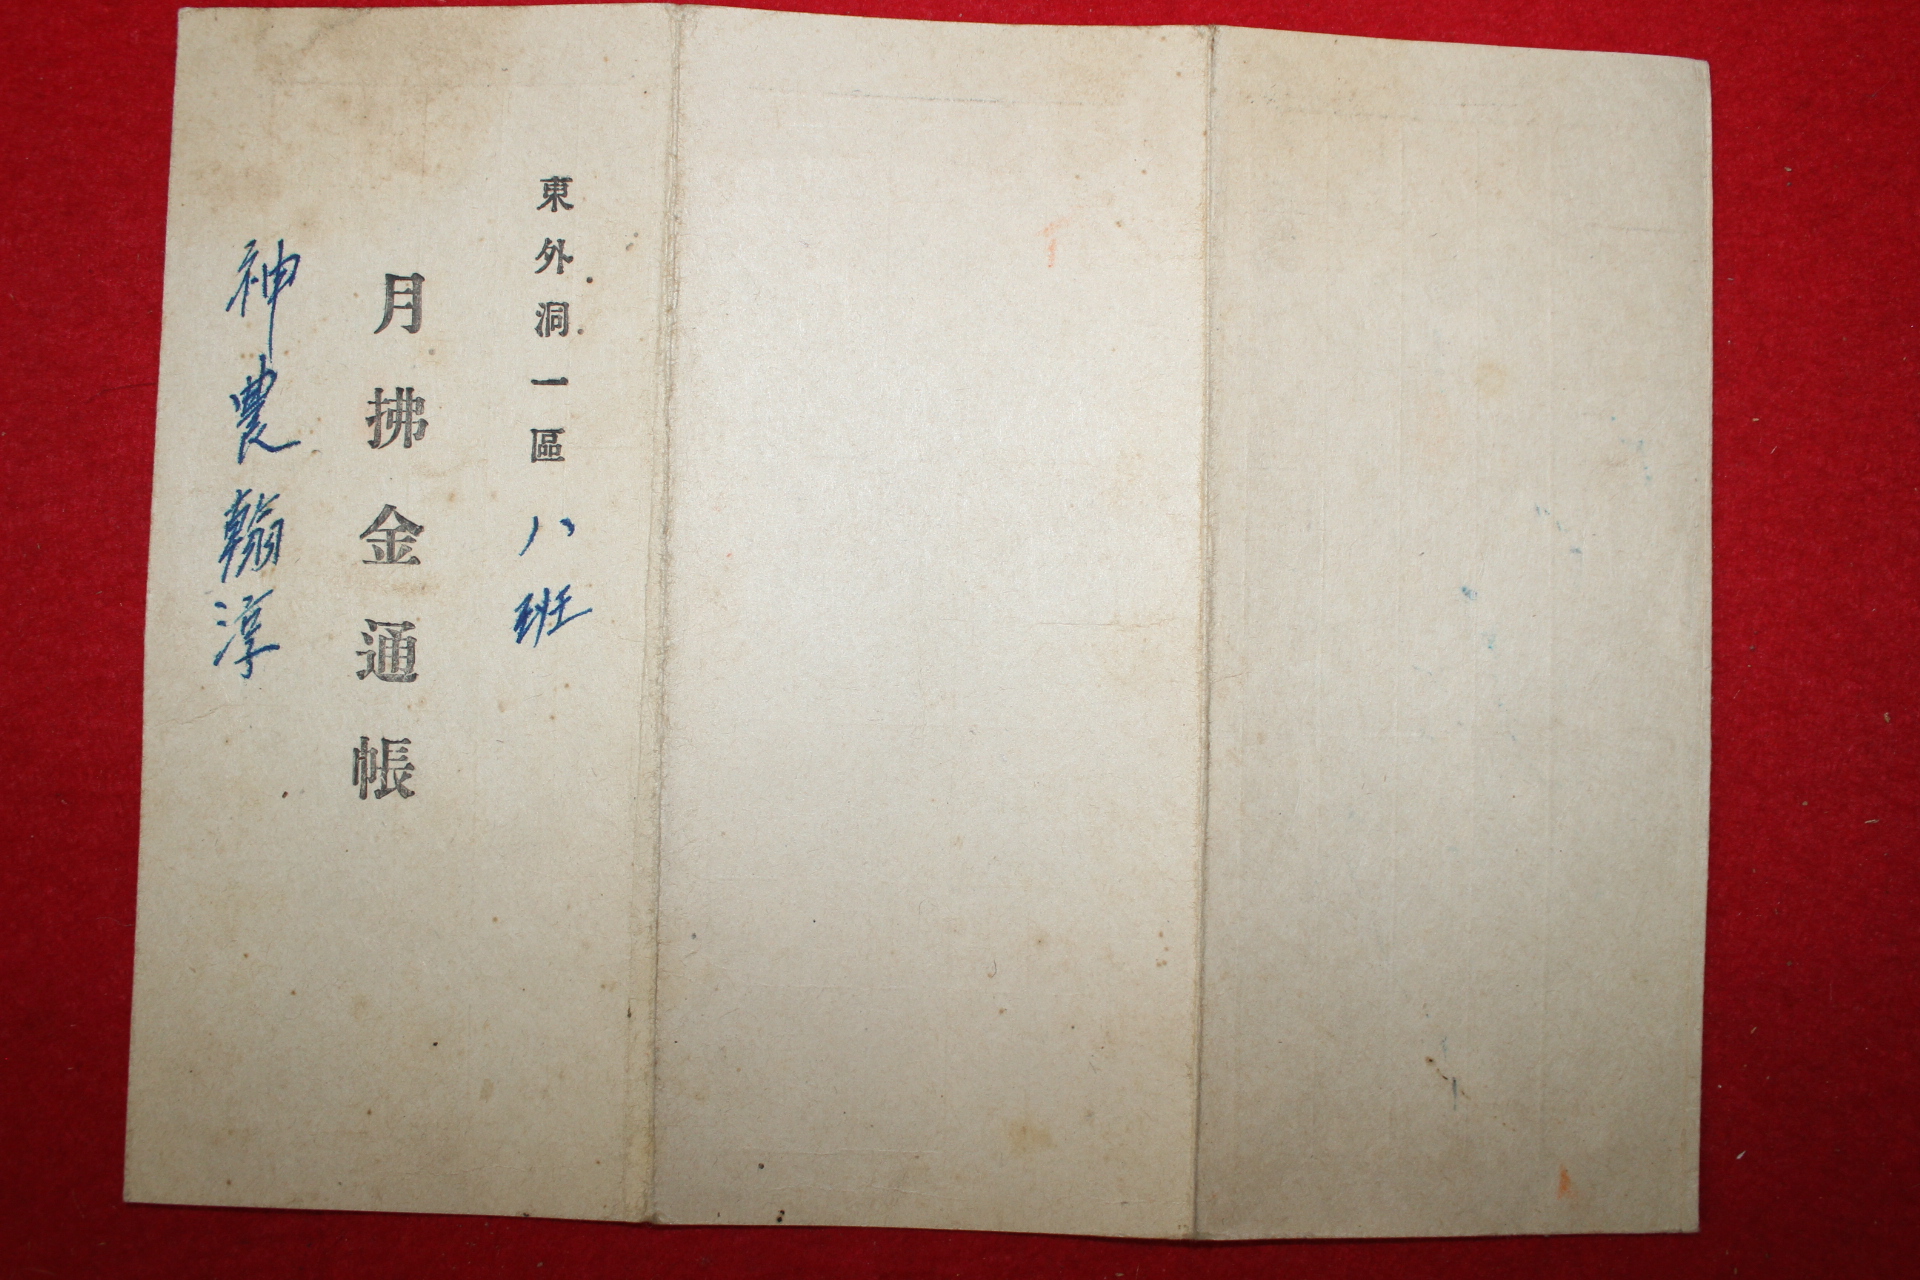 東外洞一區八班
月拂金通帳
神農翰淳